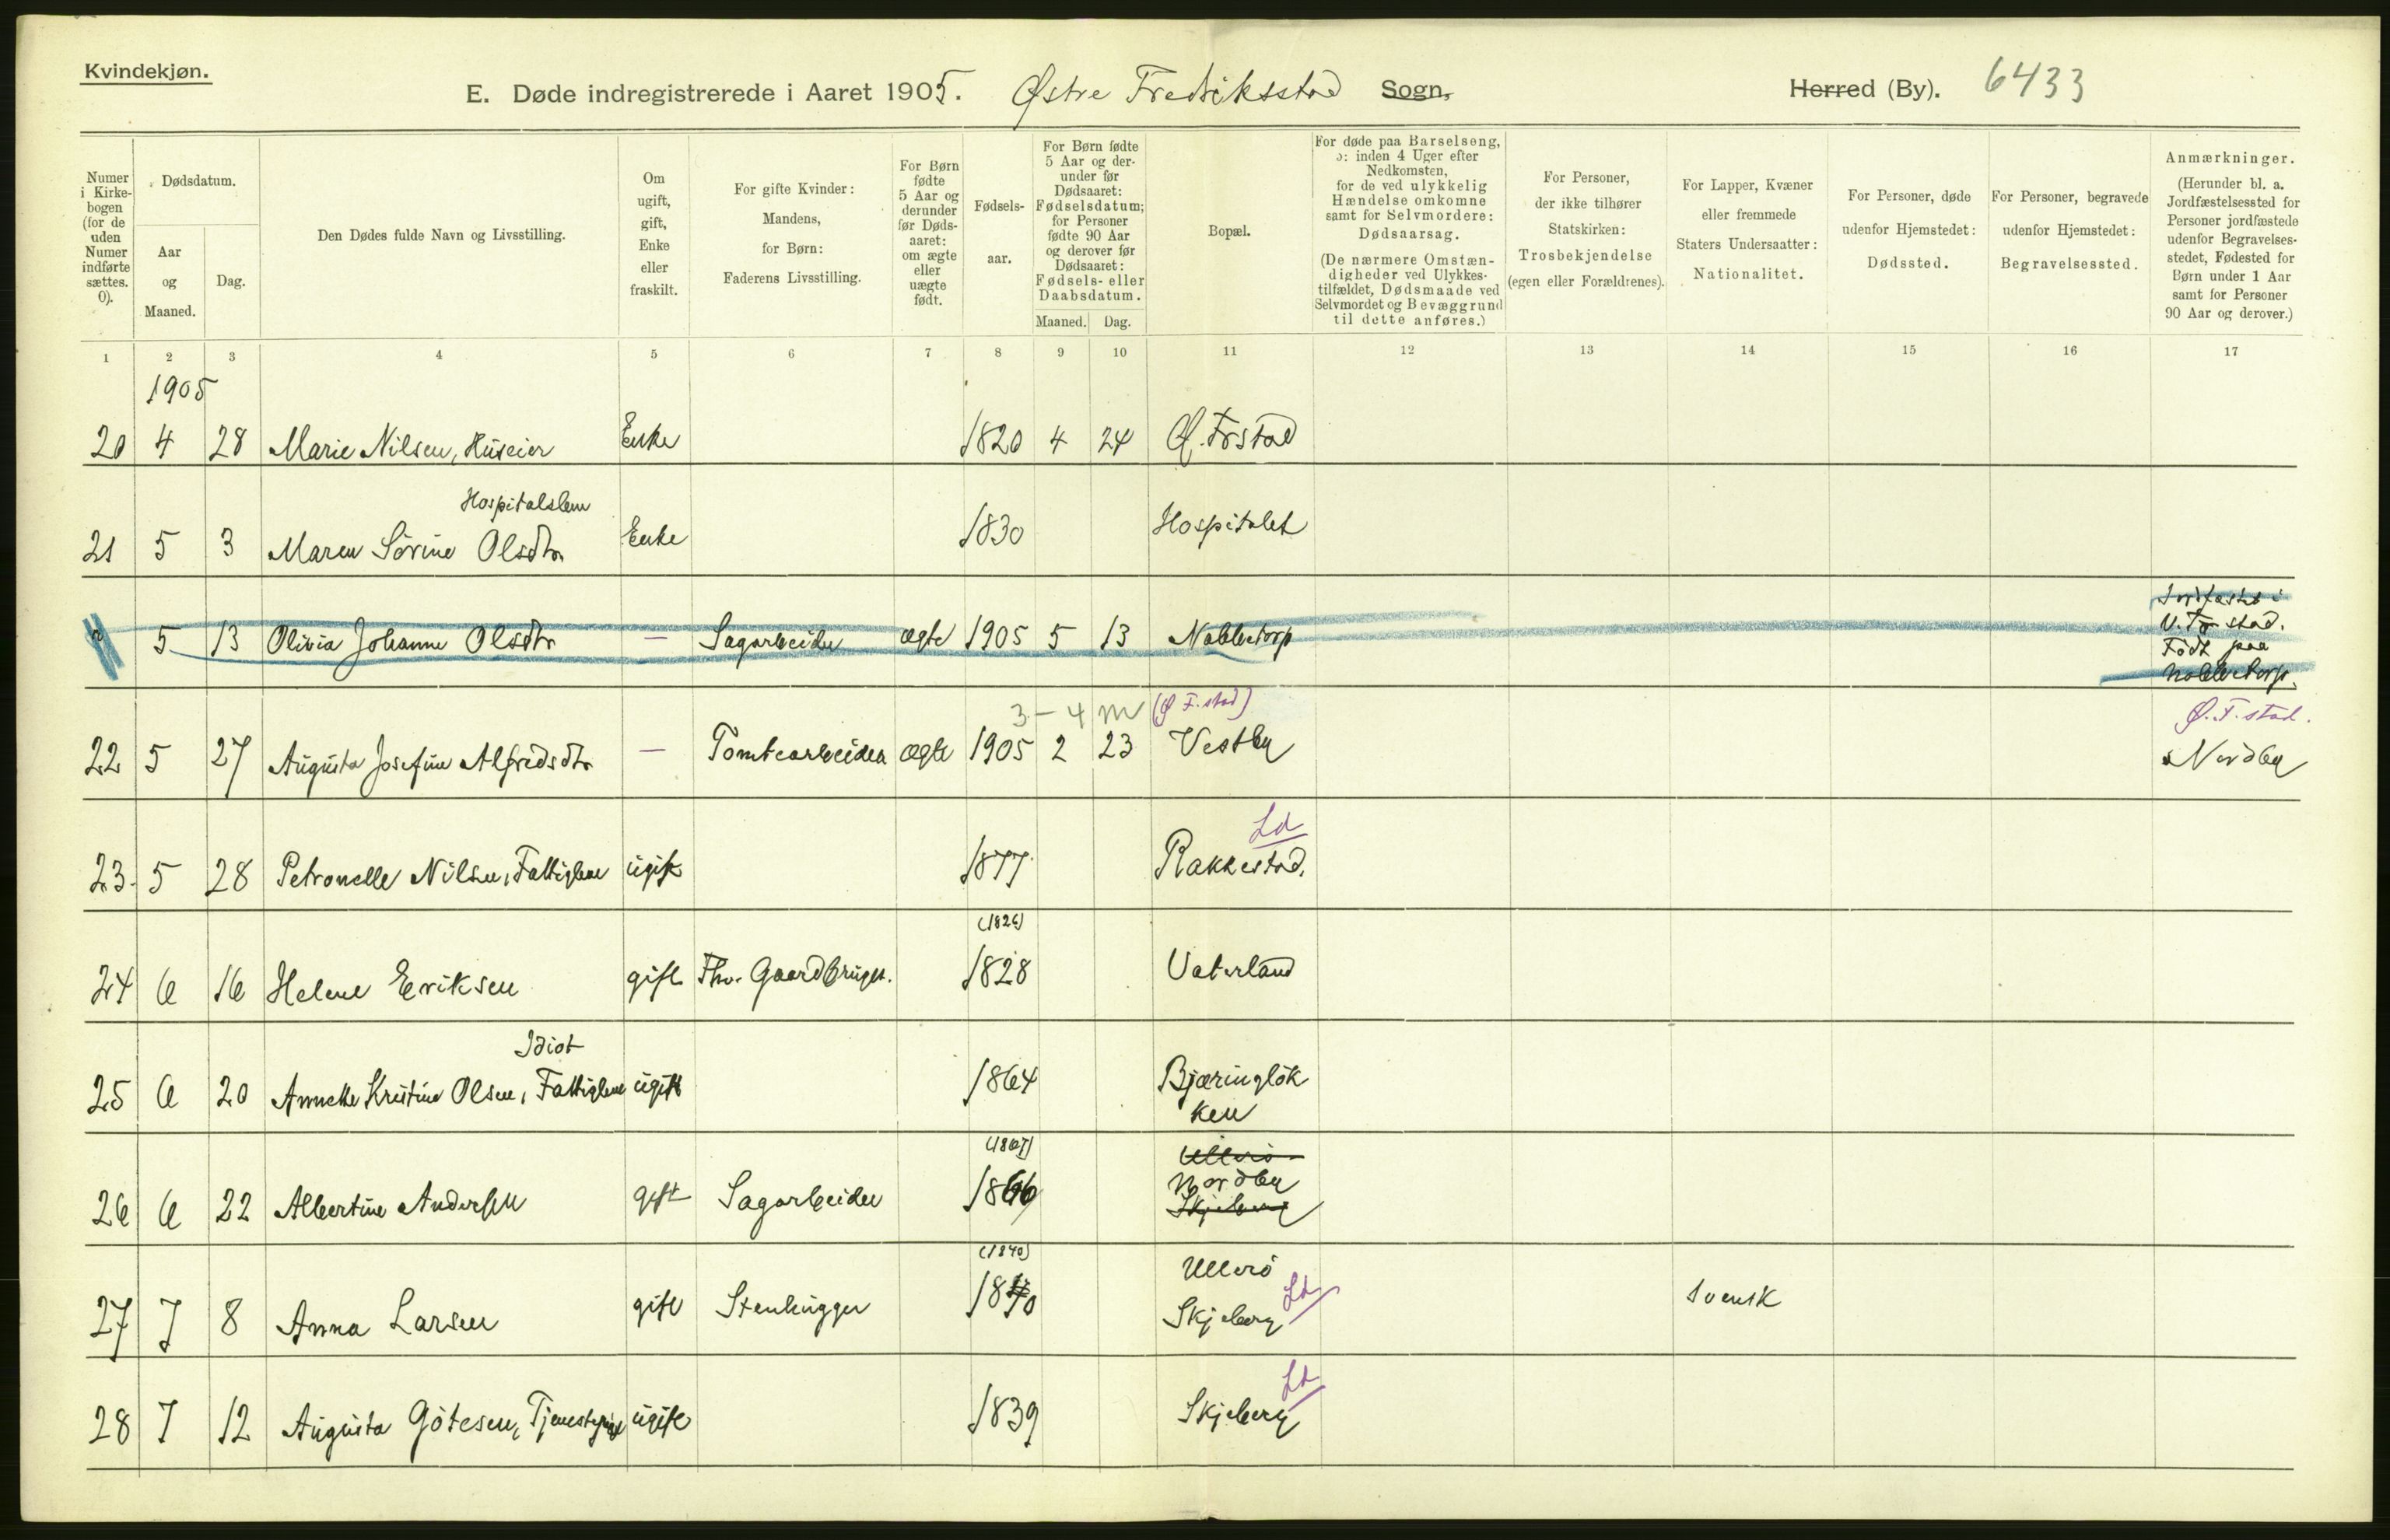 Kvindekjøn.
E. Døde indregistrerede i Aaret 1905. Østre Fredriksstad Sogn, Herred (By). 6433
Numer i Kirke-bogen (for de uden Numer indførte sættes. 0).
Dødsdatum.
Aar og Maaned.
Dag.
Den Dødes fulde Navn og Livsstilling.
Om ugift, gift, Enke eller fraskilt.
For gifte Kvinder: Mandens, for Børn: Faderens Livsstilling.
For Børn fødte 5 Aar og derunder før Døds-aaret: om ægte eller uægte født.
Fødsels-aar.
For Børn fødte 5 Aar og der-under før Dødsaaret: Fødselsdatum; for Personer fødte 90 Aar og derover før Dødsaaret: Fødsels- eller Daabsdatum.
Maaned. Dag.
Bopæl.
For døde paa Barselseng, ɔ: inden 4 Uger efter Nedkomsten, for de ved ulykkelig Hændelse omkomne samt for Selvmordere: Dødsaarsag.
(De nærmere Omstæn-digheder ved Ulykkes-tilfældet, Dødsmaade ved Selvmordet og Bevæggrund til dette anføres.)
For Personer, der ikke tilhører Statskirken: Trosbekjendelse (egen eller Forældrenes).
For Lapper, Kvæner eller fremmede Staters Undersaatter: Nationalitet.
For Personer, døde udenfor Hjemstedet: Dødssted.
For Personer, begravede udenfor Hjemstedet: Begravelsessted.
Anmærkninger. (Herunder bl. a. Jordfæstelsessted for Personer jordfæstede udenfor Begravelses-stedet, Fødested for Børn under 1 Aar samt for Personer 90 Aar og derover.)
1 2 3 4 5 6 7 8 9 10 11 12 13 14 15 16 17
1905
20 4 28 Marie Nilsen, Huseier Enke 1820 4 24 Ø. Frstad
Hospitalslem
21 5 3 Maren Sørine Olsdtr Enke 1830 Hospitalet
5 13 Olivia Johanne Olsdtr — Sagarbeider ægte 1905 5 13 Nabbetorp Jordfæstet i
V. Fr stad.
Født paa
Nabbetorp.
3 – 4 m (Ø F. stad) Ø. F. stad.
22 5 27 Augusta Josefine Alfredsdtr — Tomtearbeider ægte 1905 2 23 Vestby Nordby
Ld
23 5 28 Petronelle Nilsen, Fattiglem ugift 1877 Rakkestad.
(1826)
24 6 16 Helene Eriksen gift Fhv. Gaardbruger. 1828 Vaterland
Idiot
25 6 20 Annette Kristine Olsen, Fattiglem ugift 1864 Bjæringløk
ken
(1867) Ullerø
26 6 22 Albertine Andersen gift Sagarbeider 1866 Nordby
Skjeberg
(1840) Ullerø
27 7 8 Anna Larsen gift Stenhugger 1840 Skjeberg Ld svensk
Ld
28 7 12 Augusta Götesen, Tjenestepige ugift 1839 Skjeberg